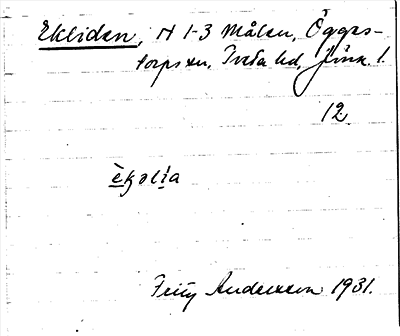 Ekliden, N 1-3 Målen, Öggers-
torps sn, Tveta hd, Jönk. l.
12
èkɔlìa
Fritz Andersson 1931.